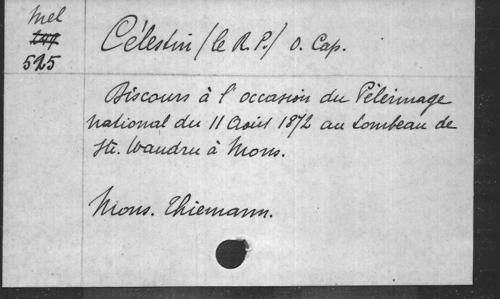 Mel
525
Célestin (le R. P.) O. Cap.
Discours à l'occasion du Pélérinage
national du 11 Août 1872 au tombeau de
Ste. Waudru à Mons.
Mons. Thiemann.